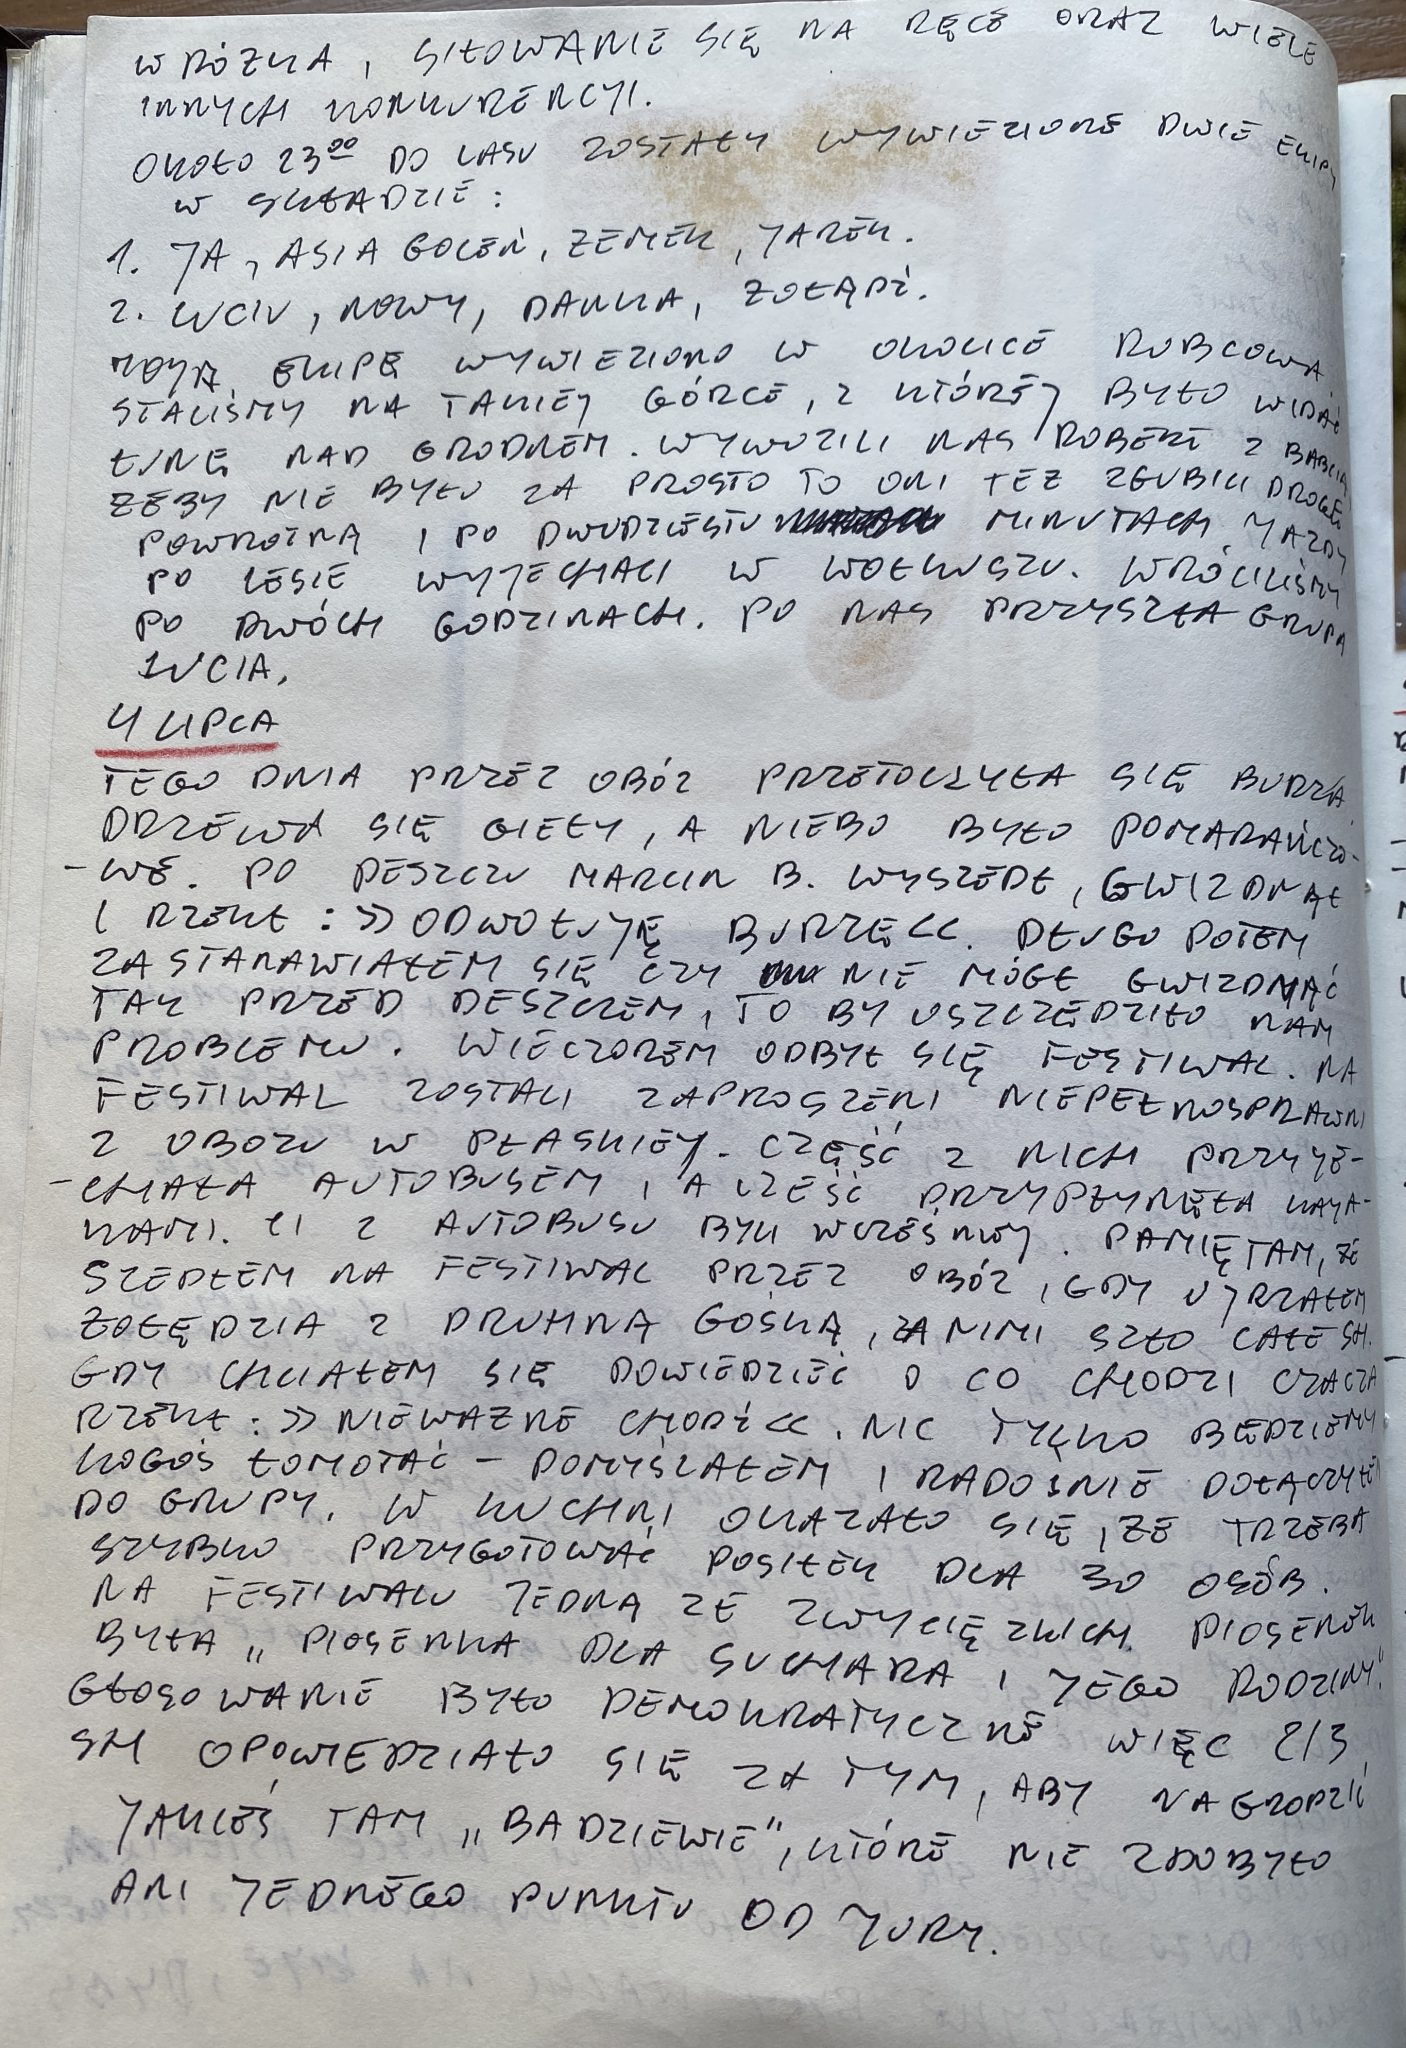 WRÓŻKA, SIŁOWANIE SIĘ NA RĘCE ORAZ WIELE
INNYCH KONKURENCYI.
OKOŁO 23⁰⁰ DO LASU ZOSTAŁY WYWIEZIONE DWIE EKIPY
W SKŁADZIE:
1. JA, ASIA GOLEŃ, ZEMEK, JAREK.
2. LUCIU, NOWY, DANKA, ŻOŁĄDŹ.
MOJĄ EKIPĘ WYWIEZIONO W OKOLICE RUBCOWA
STALIŚMY NA TAKIEJ GÓRCE, Z KTÓREJ BYŁO WIDAĆ
ŁUNĘ NAD GRODNEM. WYWOZILI NAS ROBERT Z BABCIĄ
ŻEBY NIE BYŁO ZA PROSTO TO ONI TEŻ ZGUBILI DROGĘ
POWROTNĄ I PO DWUDZIESTU MINUTACH JAZDY
PO LESIE WYJECHALI W WOŁKUSZU. WRÓCILIŚMY
PO DWÓCH GODZINACH. PO NAS PRZYSZŁA GRUPA
LUCIA.
4 LIPCA
TEGO DNIA PRZEZ OBÓZ PRZETOCZYŁA SIĘ BURZA.
DRZEWA SIĘ GIĘŁY, A NIEBO BYŁO POMARAŃCZO-
-WE. PO DESZCZU MARCIN B. WYSZEDŁ, GWIZDNĄŁ
I RZEKŁ: >> ODWOŁUJĘ BURZĘ <<. DŁUGO POTEM
ZASTANAWIAŁEM SIĘ CZY NIE MÓGŁ GWIZDNĄĆ
TAK PRZED DESZCZEM, TO BY USZCZĘDZIŁO NAM
PROBLEMU. WIECZOREM ODBYŁ SIĘ FESTIWAL. NA
FESTIWAL ZOSTALI ZAPROSZENI NIEPEŁNOSPRAWNI
Z OBOZU W PŁASKIEJ. CZĘŚĆ Z NICH PRZYJE-
-CHAŁA AUTOBUSEM, A CZĘŚĆ PRZYPŁYNĘŁA KAJA-
KAMI. CI Z AUTOBUSU BYLI WCZEŚNIEJ. PAMIĘTAM, ŻE
SZEDŁEM NA FESTIWAL PRZEZ OBÓZ, GDY UJRZAŁEM
ŻOŁĘDZIA Z DRUHNĄ GOŚKĄ, ZA NIMI SZŁO CAŁE SH.
GDY CHCIAŁEM SIĘ DOWIEDZIEĆ O CO CHODZI CZACZA
RZEKŁ: >> NIEWAŻNE CHODŹ <<. NIC TYLKO BĘDZIEMY
KOGOŚ ŁOMOTAĆ – DOMYŚLAŁEM I RADOŚNIE DOŁĄCZYŁEM
DO GRUPY. W KUCHNI OKAZAŁO SIĘ, ŻE TRZEBA
SZYBKO PRZYGOTOWAĆ POSIŁEK DLA 30 OSÓB.
NA FESTIWALU JEDNĄ ZE ZWYCIĘZKICH PIOSENEK
BYŁA „PIOSENKA DLA SUCHARA I JEGO RODZINY".
GŁOSOWANIE BYŁO DEMOKRATYCZNE WIĘC 2/3
SH OPOWIEDZIAŁO SIĘ ZA TYM, ABY NAGRODZIĆ
JAKIEŚ TAM „BADZIEWIE", KTÓRE NIE ZDOBYŁO
ANI JEDNEGO PUNKTU OD JURY.